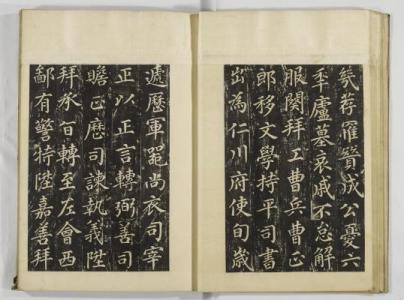 幾荐罹贊成公憂六
秊廬墓哀戚不怠解
服闋拜工曹兵曹正
郎移文學持平司書
出為仁川府使旬歲
遞歷軍器尚衣司宰
正以正言轉弼善司
瞻正歷司諫執義陞
拜承旨轉至左會西
鄙有警特陞嘉善拜